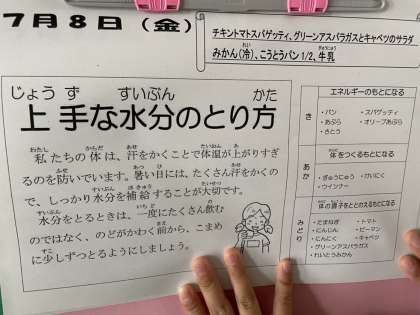 7月8日(金)
チキントマトスパゲッティ、グリーンアスパラガスとキャベツのサラダ
みかん(冷)、こうとうパン1/2、牛乳
上手な水分のとり方
私たちの体は、汗をかくことで体温が上がりすぎ
るのを防いでいます。暑い日には、たくさん汗をかくの
で、しっかり水分を補給することが大切です。
水分をとるときは、一度にたくさん飲む
のではなく、のどがかわく前から、こまめ
に少しずつとるようにしましょう。
エネルギーのもとになる
き
・パン ・スパゲッティ
・あぶら ・オリーブあぶら
・さとう
体をつくるもとになる
あか
・ぎゅうにゅう ・けいにく
・ウインナー
体の調子をととのえるもとになる
みどり
・たまねぎ ・トマト
・にんじん ・ピーマン
・にんにく ・キャベツ
・グリーンアスパラガス
・れいとうみかん